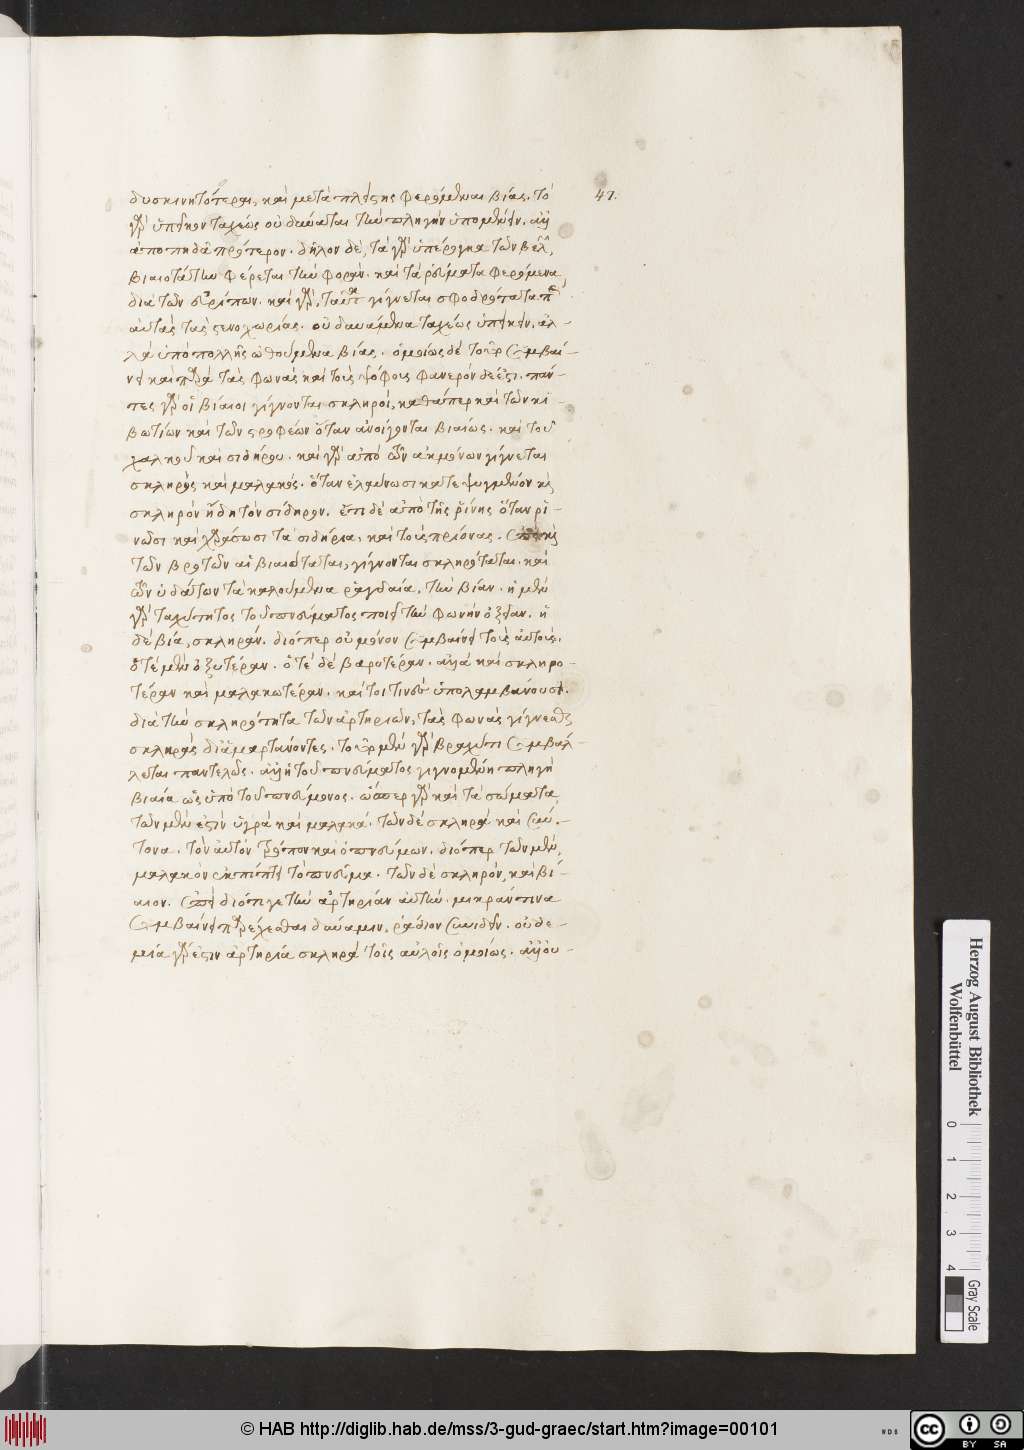 δυσκινητότεραι, καὶ μετὰ πλείστης φερόμεναι βίας. τὸ
47.
γὰρ ὑπεῖκον ταχέως οὐ δύναται τὴν πληγὴν ὑπομένειν. ἀλλ'
ἀποπηδᾷ πρότερον. δῆλον δέ, τὰ γὰρ ὑπέρογκα τῶν βελῶν,
βιαιοτάτην φέρεται τὴν φοράν. καὶ τὰ ῥεύματα φερόμενα
διὰ τῶν εὐρίπων. καὶ γὰρ, ταῦτα γίγνεται σφοδρότατα περὶ
αὐτὰς τὰς στενοχωρίας. οὐ δυνάμενα ταχέως ὑπείκειν, ἀλ-
λὰ ὑπὸ πολλῆς ὠθούμενα βίας. ὁμοίως δὲ τοῦτο συμβαί-
νει καὶ περὶ τὰς φωνὰς καὶ τοὺς ψόφους φανερὸν δέ ἐστι. πάν-
τες γὰρ οἱ βίαιοι γίγνονται σκληροί, καθάπερ καὶ τῶν κι-
βωτίων καὶ τῶν στροφέων ὅταν ἀνοίγονται βιαίως. καὶ τοῦ
χαλκοῦ καὶ σιδήρου. καὶ γὰρ ἀπὸ τῶν ἀκμόνων γίγνεται
σκληρὸς καὶ μαλακός. ὅταν ἐλαύνωσι κατεψυγμένον καὶ
σκληρὸν ἤδη τὸν σίδηρον. ἔτι δὲ ἀπὸ τῆς ῥίνης ὅταν ῥι-
νῶσι καὶ χαράσσωσι τὰ σιδήρια, καὶ τοὺς πρίονας. καὶ
τῶν βροτῶν αἱ βιαιόταται, γίγνονται σκληρόταται. καὶ
τῶν ὑδάτων τὰ καλούμενα ῥαγδαία. τὴν βίαν. ἡ μὲν
γὰρ ταχύτης τοῦ πνεύματος ποιεῖ τὴν φωνὴν ὀξεῖαν. ἡ
δὲ βία, σκληράν. διόπερ οὐ μόνον συμβαίνει τοὺς αὐτούς,
ὁτὲ μὲν ὀξυτέραν. ὁτὲ δὲ βαρυτέραν. ἀλλὰ καὶ σκληρο-
τέραν καὶ μαλακωτέραν. καίτοι τινὲς ὑπολαμβάνουσι.
διὰ τὴν σκληρότητα τῶν ἀρτηριῶν, τὰς φωνὰς γίγνεσθαι
σκληρὰς διαμαρτάνοντες. τοῦτο μὲν γὰρ βραχύ τι συμβάλ-
λεται παντελῶς. ἀλλ' ἡ τοῦ πνεύματος γιγνομένη πληγὴ
βιαία ὡς ὑπὸ τοῦ πνεύμονος. ὥσπερ γὰρ καὶ τὰ σώματα
τῶν μέν ἐστιν ὑγρὰ καὶ μαλακά. τῶν δὲ σκληρὰ καὶ σύν-
τονα. τὸν αὐτὸν τρόπον καὶ ὁ πνεύμων. διόπερ τῶν μὲν,
μαλακὸν ἐκπίπτει τὸ πνεῦμα. τῶν δὲ σκληρὸν, καὶ βί-
αιον. ἐπεὶ διότι γε τὴν ἀρτηρίαν αὐτὴν. μικράν τινα
συμβαίνει παρέχεσθαι δύναμιν, ῥάδιον συνιδεῖν. οὐδε-
μία γάρ ἐστιν ἀρτηρία σκληρὰ τοῖς αὐλοῖς ὁμοίως. ἀλλ' οὐ-
Herzog August Bibliothek
Wolfenbüttel
0 1 2 3 4
Gray Scale
© HAB http://diglib.hab.de/mss/3-gud-graec/start.htm?image=00101
WDB
cc BY SA